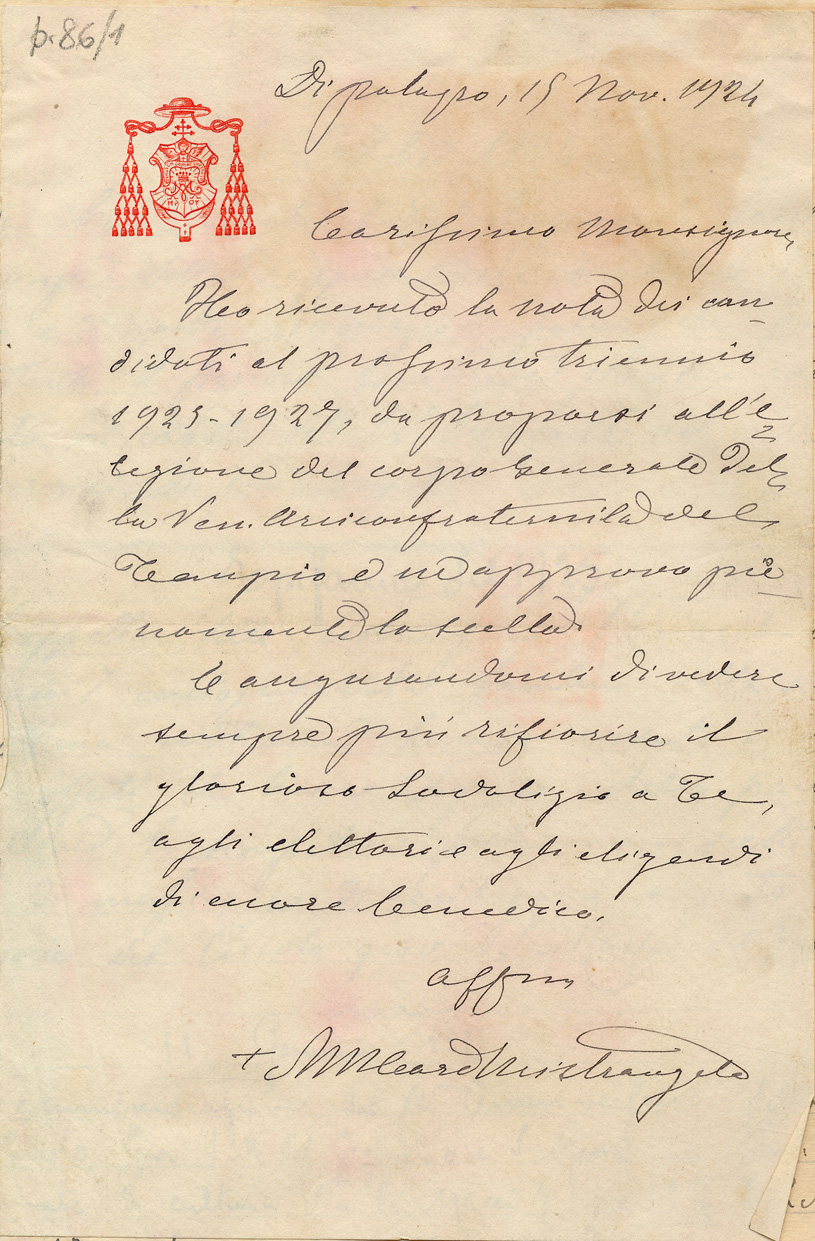 p. 86/1
Di palagio, 15 Nov. 1924
Carissimo Monsignore,
Ho ricevuto la nota dei can-
didati al prossimo triennio
1925-1927, da proporsi all'e-
lezione del corpo generale del-
la Ven. Arciconfraternita del
Tempio e ne approvo pie-
namente la scelta.
E augurandomi di vedere
sempre più rifiorire il
glorioso Sodalizio a Te,
agli elettori e agli eligendi
di cuore benedico.
affmo
+ A M Card Mistrangelo